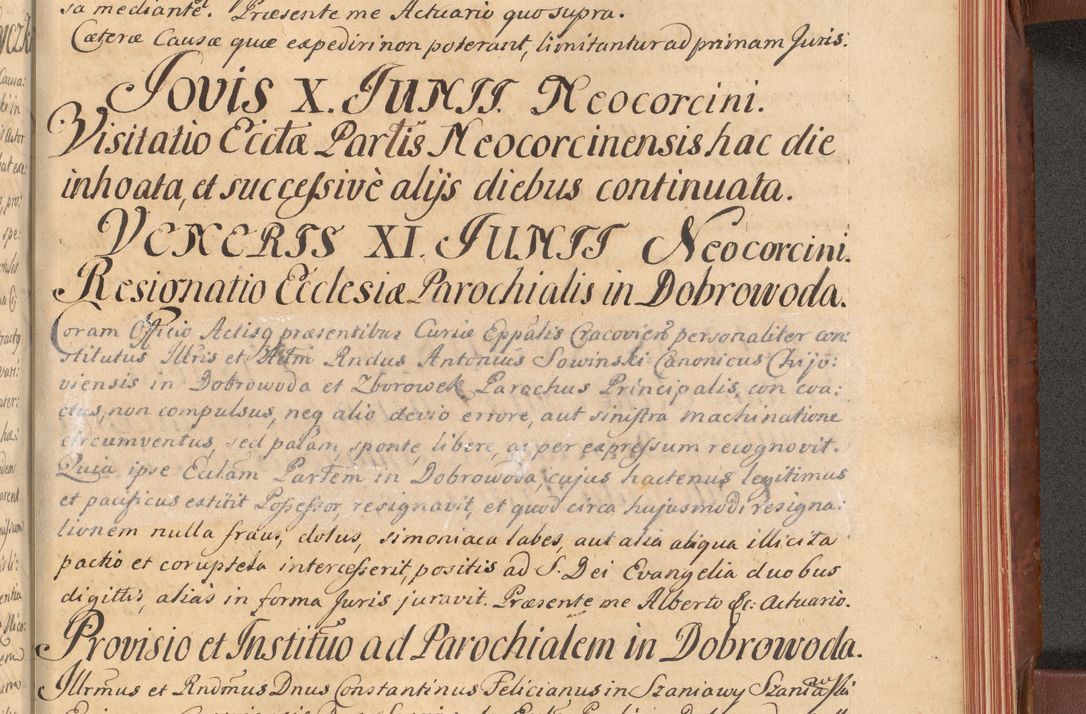 sa mediante. Præsente me Actuario quo supra.
Cæteræ Causæ quæ expediri non poterant, limitantur ad primam Juris.
Jovis X. Junii. Neocorcini.
Visitatio Ecctæ Partis Neocorcinensis hac die
inhoata, et successivè alijs diebus continuata.
Veneris XI. Junii Neocorcini.
Resignatio Ecclesiæ Parochialis in Dobrowoda.
Coram Officio Actisq præsentibus Curiæ Eppalis Cracovien personaliter con:
stitutus Illris et Adm Rndus Antonius Sowinski Canonicus Chijo:
viensis in Dobrowoda et Zborowek Parochus Principalis, con coa:
ctus, non compulsus, neq alio devio errore, aut sinistra machinatione
circumventus, sed palam, sponte, libere, ac per expressum recognovit.
Quia ipse Ecclam Partem in Dobrowoda, cujus hactenus legitimus
et pacificus extitit Possessor resignavit, et quod circa hujusmodi resigna:
tionem nulla fraus, dolus, simoniaca labes, aut alia aliqua illicita
pactio et coruptela intercesserit, positis ad S. Dei Evangelia duobus
digittis, aliàs in forma Juris juravit. Præsente me Alberto &c: Actuario.
Provisio et Institutio ad Parochialem in Dobrowoda.
Illrmus et Rndmus Dnus Constantinus Felicianus in Szaniawy Szaniawski